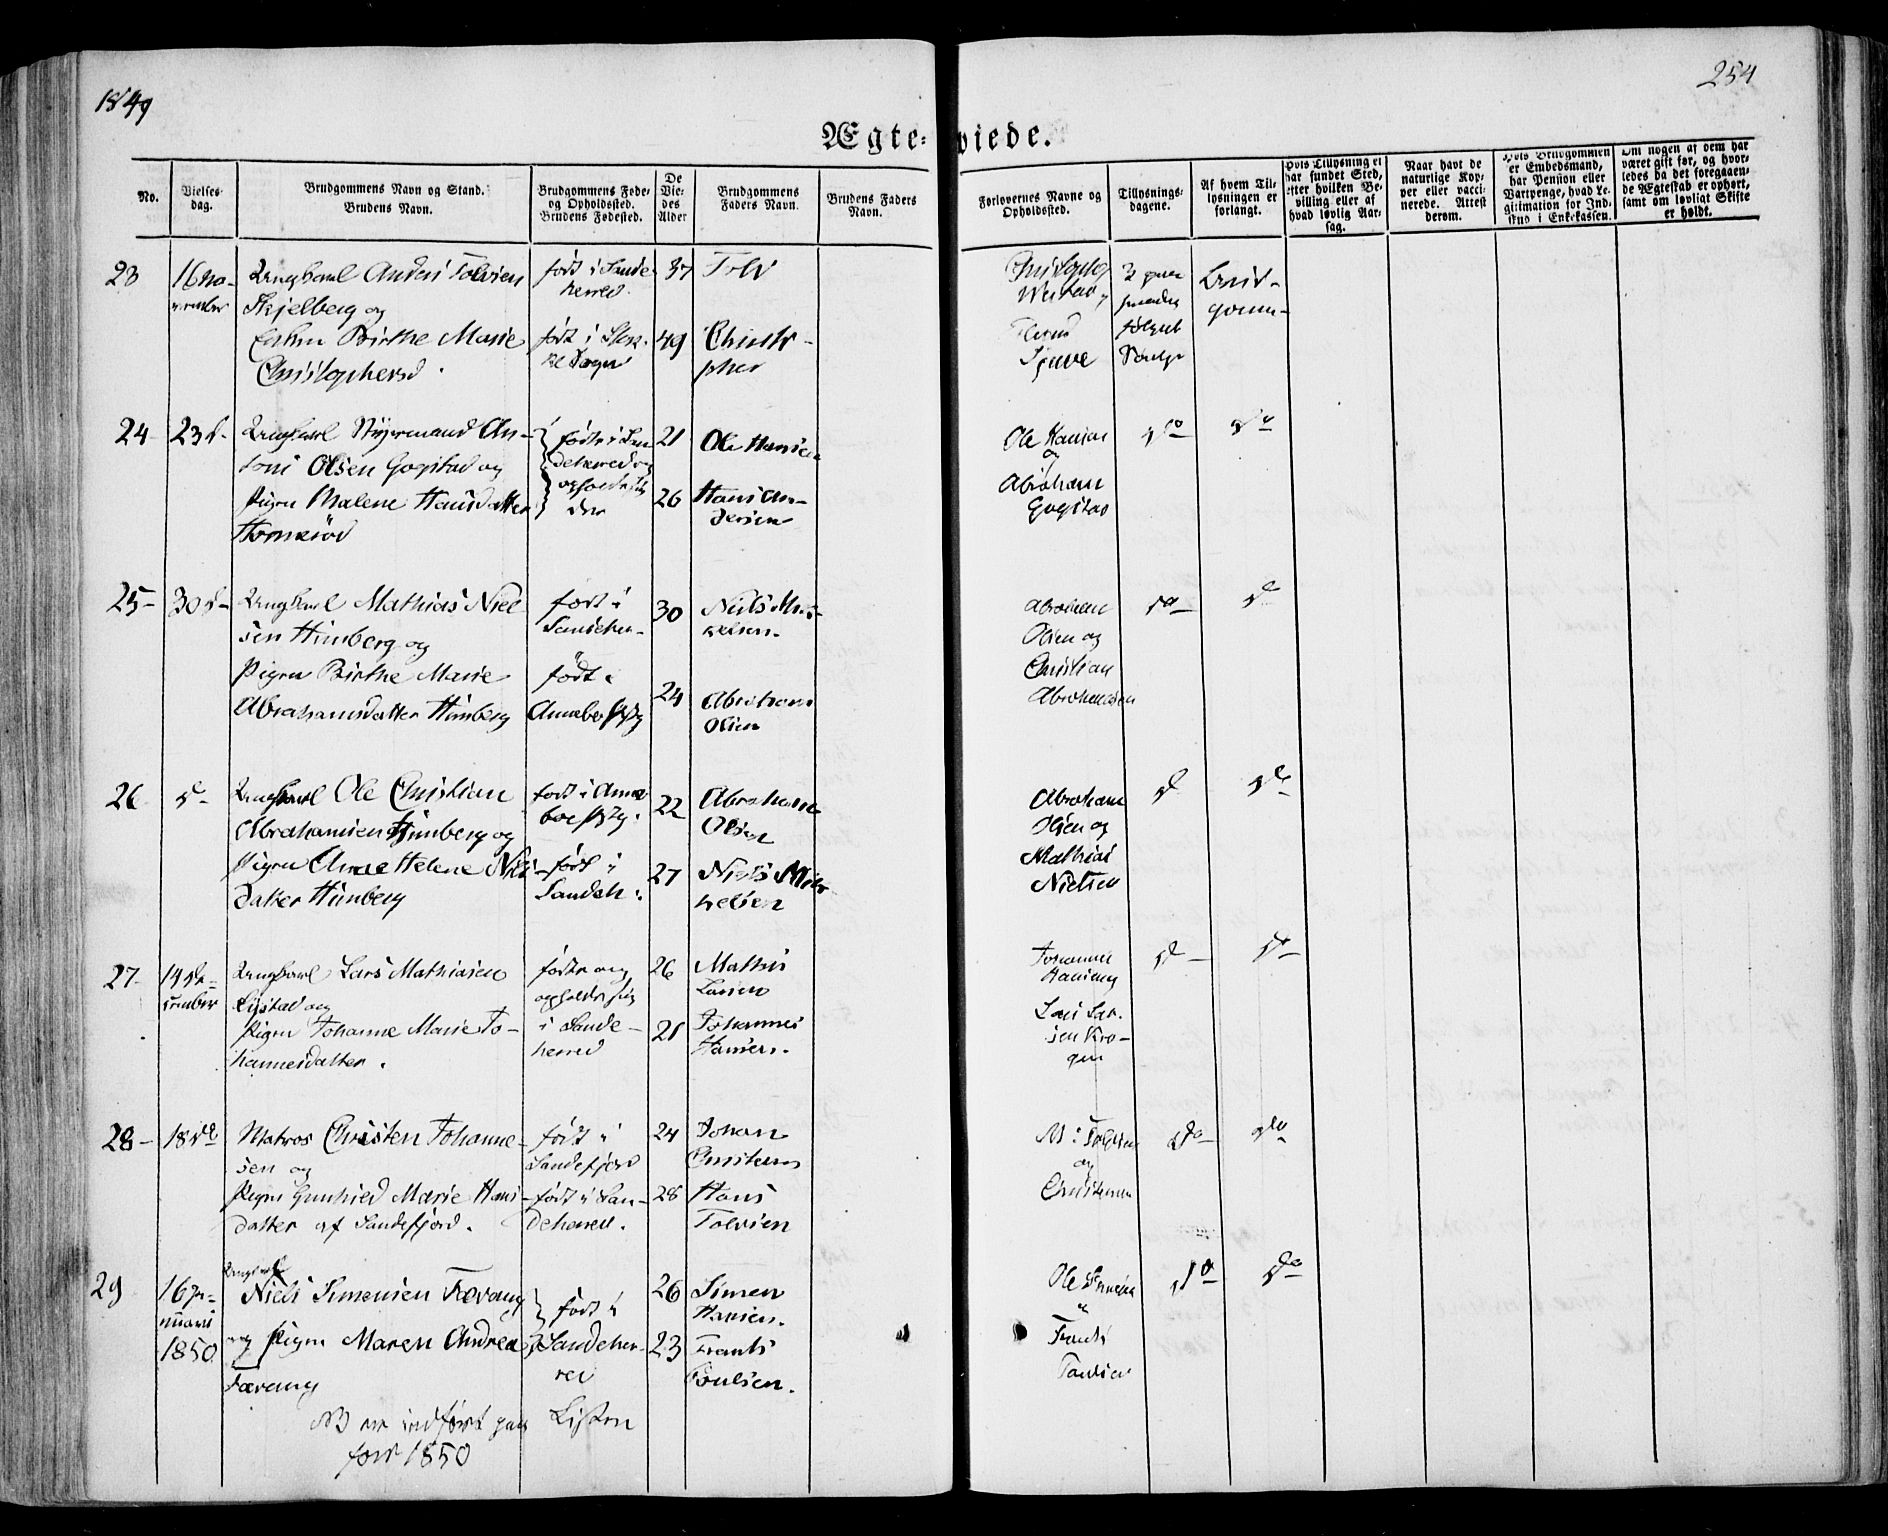 1849
254
Ægte-viede.
No.
Vielses-
dag.
Brudgommens Navn og Stand.
Brudens Navn.
Brudgommens Føde-
og Opholdssted.
Brudens Fødested.
De
Vie-
des
Alder
Brudgommens
Faders Navn.
Brudens Faders
Navn.
Forlovernes Navne og
Opholdssted.
Tillysnings-
dagene.
Af hvem Til-
lysningen er
forlangt.
Hvis Tillysning ei
har fundet Sted,
efter hvilken Be-
villing eller af
hvad lovlig Aar-
sag.
Naar havt de
naturlige Kop-
per eller vacci-
nerede. Attest
derom.
Hvis Brudgommen
er Embedsmand,
har Pension eller
Vartpenge, hvad Le-
gitimation for Ind-
skud i Enkekassen.
Om nogen af dem har
været gift før, og hvor-
ledes da det foregaaen-
de Ægteskab er ophørt,
samt om lovligt Skifte
er holdt.
23
16 No-
vember
Ungkarl Anders Tolvsen
Skjelberg og
Enken Birthe Marie
Christophersd.
født i Sande-
herred
født i Stok-
ke Sogn
37
49
Tolv
Christo-
pher
og
Brud-
gomm-
24
23 d-
Ungkarl Styrmand An-
toni Olsen Gogstad og
Pigen Malene Hansdatter
født i San-
deherred og
21
26
Ole Hansen
Hans An-
dersen
Ole Hansen
og
Abraham
Gogstad
do
do
25-
30 d-
Ungkarl Mathias Niel
sen Himberg og
Pigen Birthe Marie
Abrahamsdatter Himberg
født i
Sandeher-
født i
30
24
Niels Mik-
kelsen.
Abraham
Olsen
Abraham
Olsen og
Christian
Abrahamsen
do
d-
26
d-
Ungkarl Ole Christian
Abrahamsen Himberg og
Pigen Anne Helene Niels-
datter Himberg
født i
født i
Sandeh.
22
27
Abraham
Olsen
Niels Mik-
kelsen
Abraham
Olsen og
Mathias
Nielsen
d
do
27-
14 De-
cember
Ungkarl Lars Mathiasen
og
Pigen Johanne Marie Jo-
hannesdatter.
fødte og
opholder sig
i Sande-
herred
26
21
Mathis
Larsen
Johannes
Hansen.
Johannes
Hansen og
Lars Lar-
sen Kro-
gen
d-
do
28-
18 de
Matros Christen Johanne-
sen og
Pigen Gunhild Marie Hans-
datter af Sandefjord.
født i
Sandefjord
født i San-
deherred.
24
28
Johan
Christensen
Hans
Tolvsen
og
Christensen
do
do
29
16 Ja-
nuari
1850
Ungkarl
Niels Simensen Færvang
og Pigen Maren Andrea
Færvang
født i
Sandeher-
red
26
23
Simen
Hansen.
Frants
Poulsen.
Ole Simensen
Frants
do
do
NB er indført paa Listen
for 1850